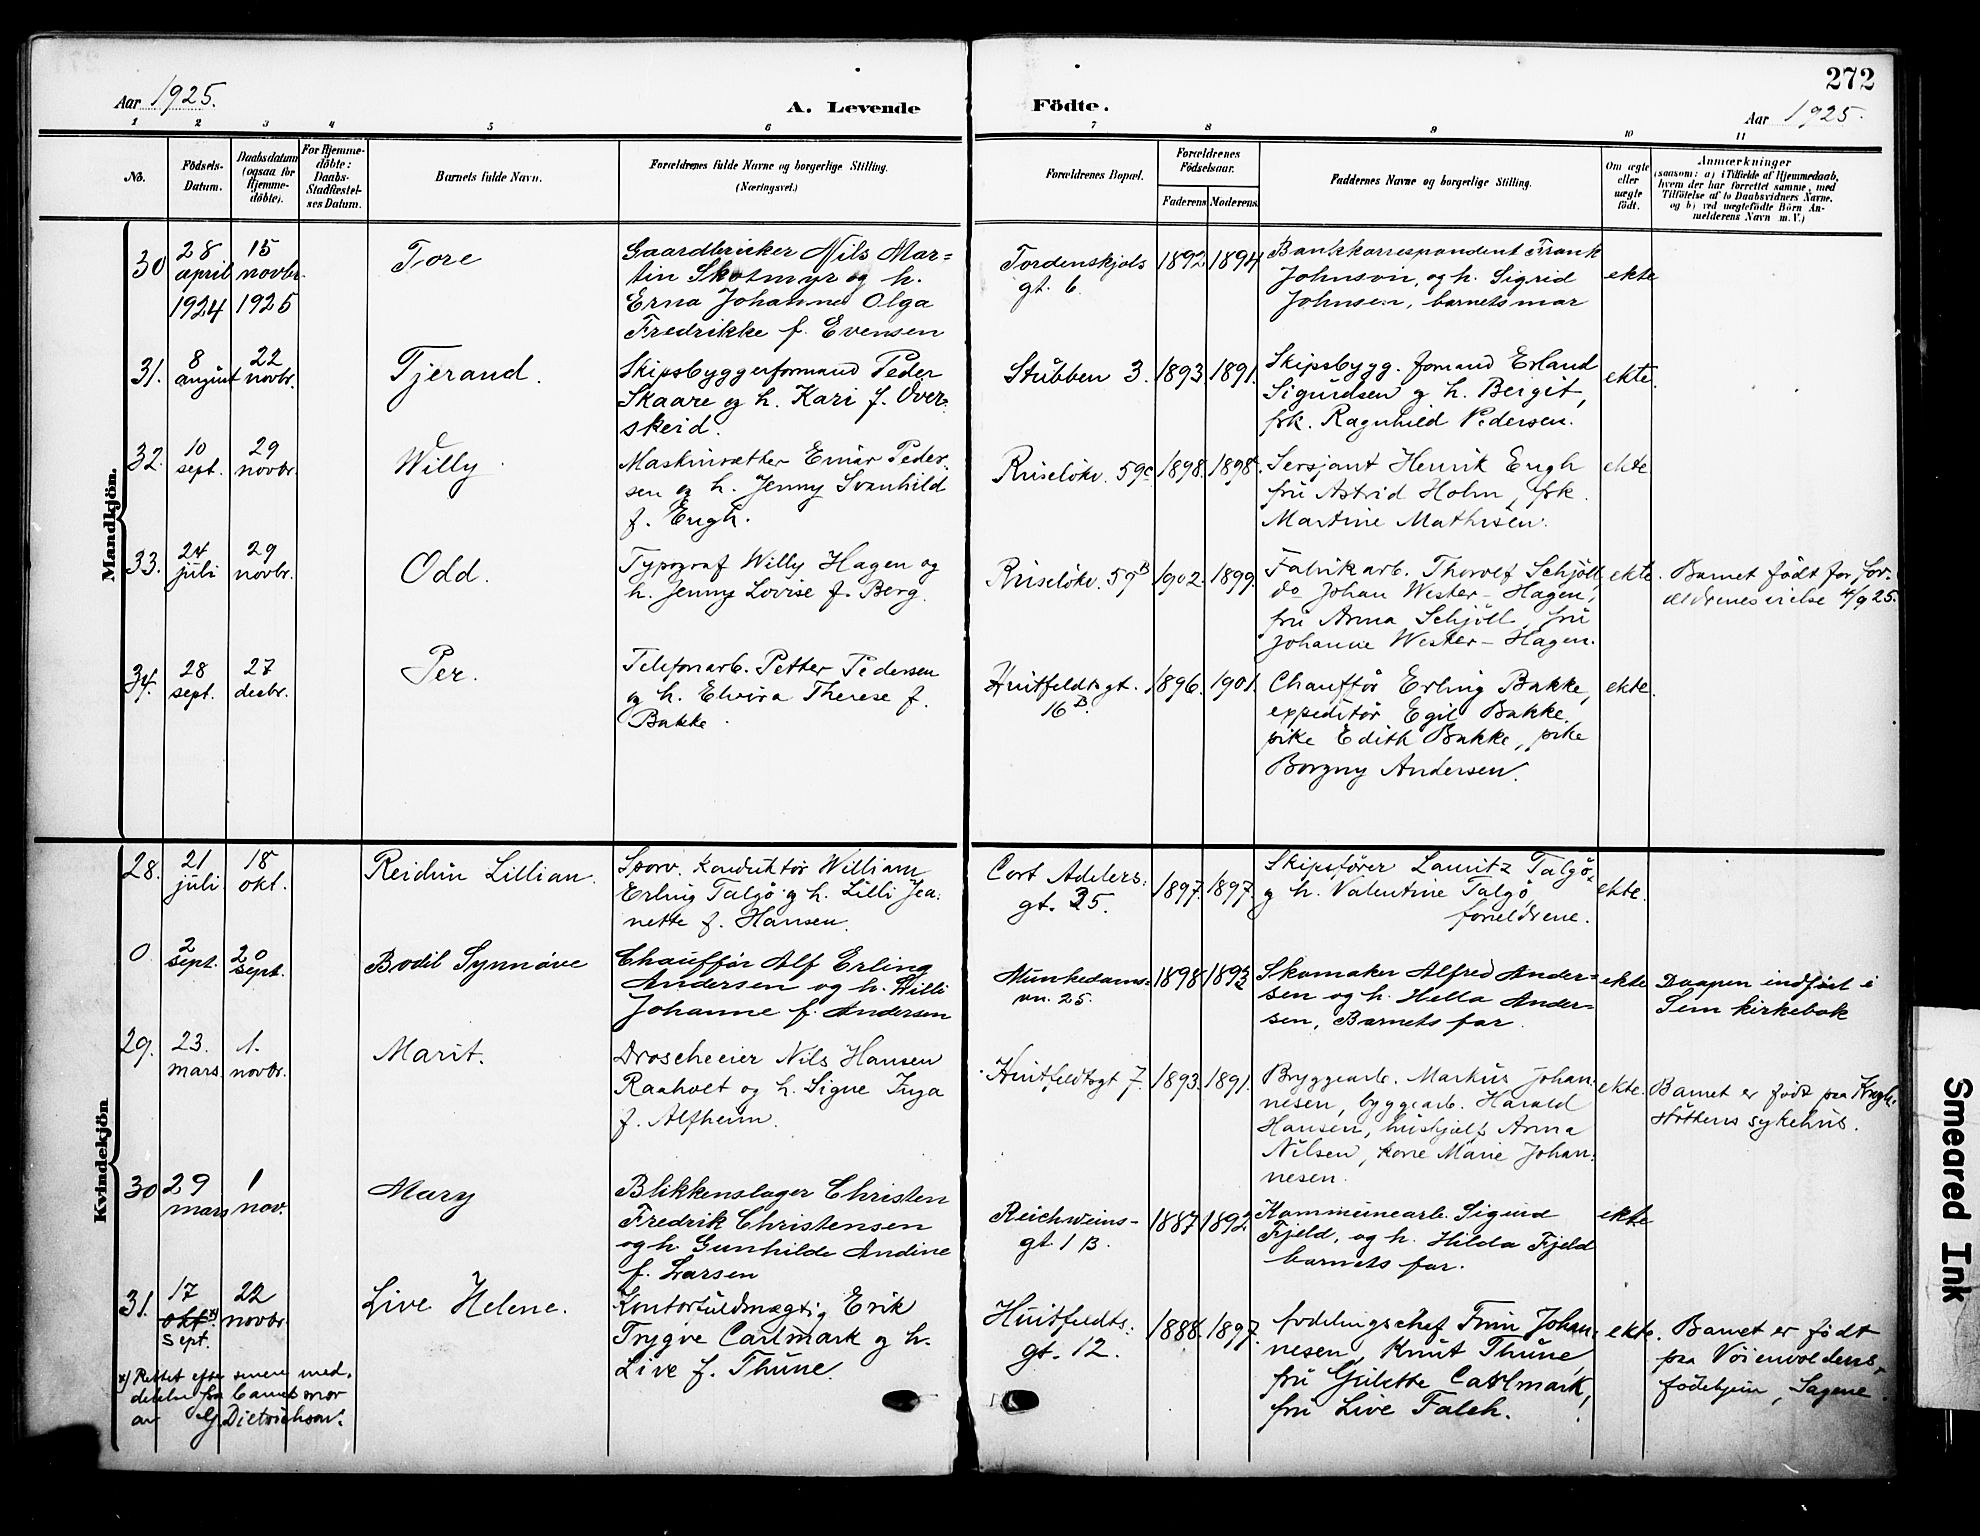 272
Aar 1925.
A. Levende
Födte.
Aar 1925.
1 2 3 4 5 6 7 8 9 10 11
No.
Födsels-
Datum.
Daabsdatum
(ogsaa for
Hjemme-
döbte).
For Hjemme-
döbte:
Daabs-
Stadfæstel-
ses Datum.
Barnets fulde Navn.
Forældrenes fulde Navne og borgerlige Stilling.
(Næringsvei.)
Forældrenes Bopæl.
Forældrenes
Födselsaar.
Faderens
Moderens.
Faddernes Navne og borgerlige Stilling.
Om ægte
eller
uægte
födt.
Anmærkninger
(saasom: a) i Tilfælde af Hjemmedaab,
hvem der har forrettet samme, med
Tilföielse af to Daabsvidners Navne,
og b) ved uægtefödte Börn An-
melderens Navn m. V.)
Mandkjön.
30
28
april
1924
15
novbr.
1925
Tore
Gaardbruker Nils Mar=
tin Skotmyr og h.
Erna Johanne Olga
Fredrikke f. Evensen
Tordenskjols
gt. 6.
1892
1894
Bankkorrespondent Frank
Johnson, og h. Sigrid
Johnsen, barnets mor
ekte
31.
8
august
22
novbr.
Tjerand.
Skipsbyggerformand Peder
Skaare og h. Kari f. Over-
skeid.
Stubben 3.
1893
1891.
Skipsbygg. formand Erland
Sigurdsen og h. Bergit,
frk. Ragnhild Pedersen.
ekte.
32.
10
sept.
29
novbr.
Willy
Maskinsætter Einar Peder-
sen og h. Jenny Svanhild
f. Engh.
Ruseløkv. 59c
1898.
1898.
Sersjant Henrik Engh
fru Astrid Holm, frk.
Martine Mathisen.
ekte
33.
24
juli
29
novbr.
Odd.
Typograf Willy Hagen og
h. Jenny Lovise f. Berg.
Ruseløkv. 59B
1902.
1899.
Fabrikarb. Thorolf Schjöll,
do Johan Wester-Hagen,
fru Anna Schjöll, fru
Johanne Wester-Hagen.
ekte.
Barnet født før for-
ældrenes vielse 4/9 25.
34.
28
sept.
27
desbr.
Per.
Telefonarb. Petter Pedersen
og h. Elvira Therese f.
Bakke.
Huitfeldtsgt.
16B.
1896.
1901.
Chauffør Erling Bakke,
expeditør Egil Bakke,
pike Edith Bakke, pike
Borgny Andersen.
ekte.
Kvindekjön
28.
21
juli
18
okt.
Reidun Lillian.
Sporv. konduktør William
Erling Talgø og h. Lilli Jea-
nette f. Hansen.
Cort Adelers-
gt. 35.
1897.
1897.
Skipsfører Lauritz Talgø
og h. Valentine Talgø,
foreldrene.
ekte.
0
2
sept.
20
sept.
Bodil Synnøve
Chauffør Alf Erling
Andersen og h. Willi
Johanne f. Andersen
Munkedams-
vn. 25.
1898
1893
Skomaker Alfred Ander=
sen og h. Hella Ander=
sen, Barnets far.
ekte
Daapen indført i
Sem kirkebok
29.
23.
mars
1.
novbr.
Marit.
Droscheeier Nils Hansen
Raaholt og h. Signe Inga
f. Alfheim.
Huitfeldtsgt 7.
1893.
1891.
Bryggearb. Markus Johan-
nesen, byggearb. Harald
Hansen, hushjelp Anna
Nilsen, kone Marie Johan-
nesen.
ekte.
Barnet er født paa Krogh-
støttens sykehus.
30
29
mars
1
nov.
Mary
Blikkenslager Christen
Fredrik Christensen
og h Gunhilde Andine
f. Larsen
Reichweins-
gt. 1 B.
1887
1892
Kommunearb. Sigurd
Fjeld, og h. Hilda Fjeld
barnets far.
ekte
31.
17
okt x)
sept.
22
novbr.
Live Helene.
Kontorfuldmægtig Erik
Trygve Carlmark og h.
Live f. Thune.
Huitfeldts-
gt. 12.
1888.
1897.
Avdelingschef Finn Johan-
nesen, Knut Thune,
fru Gulette Carlmark,
fru Live Falch.
ekte.
Barnet er født
paa Vøienvoldens
fødehjem, Sagene.
x) Rettet efter senere med-
delelse fra barnets mor
av G. Dietrichson.
Smeared Ink